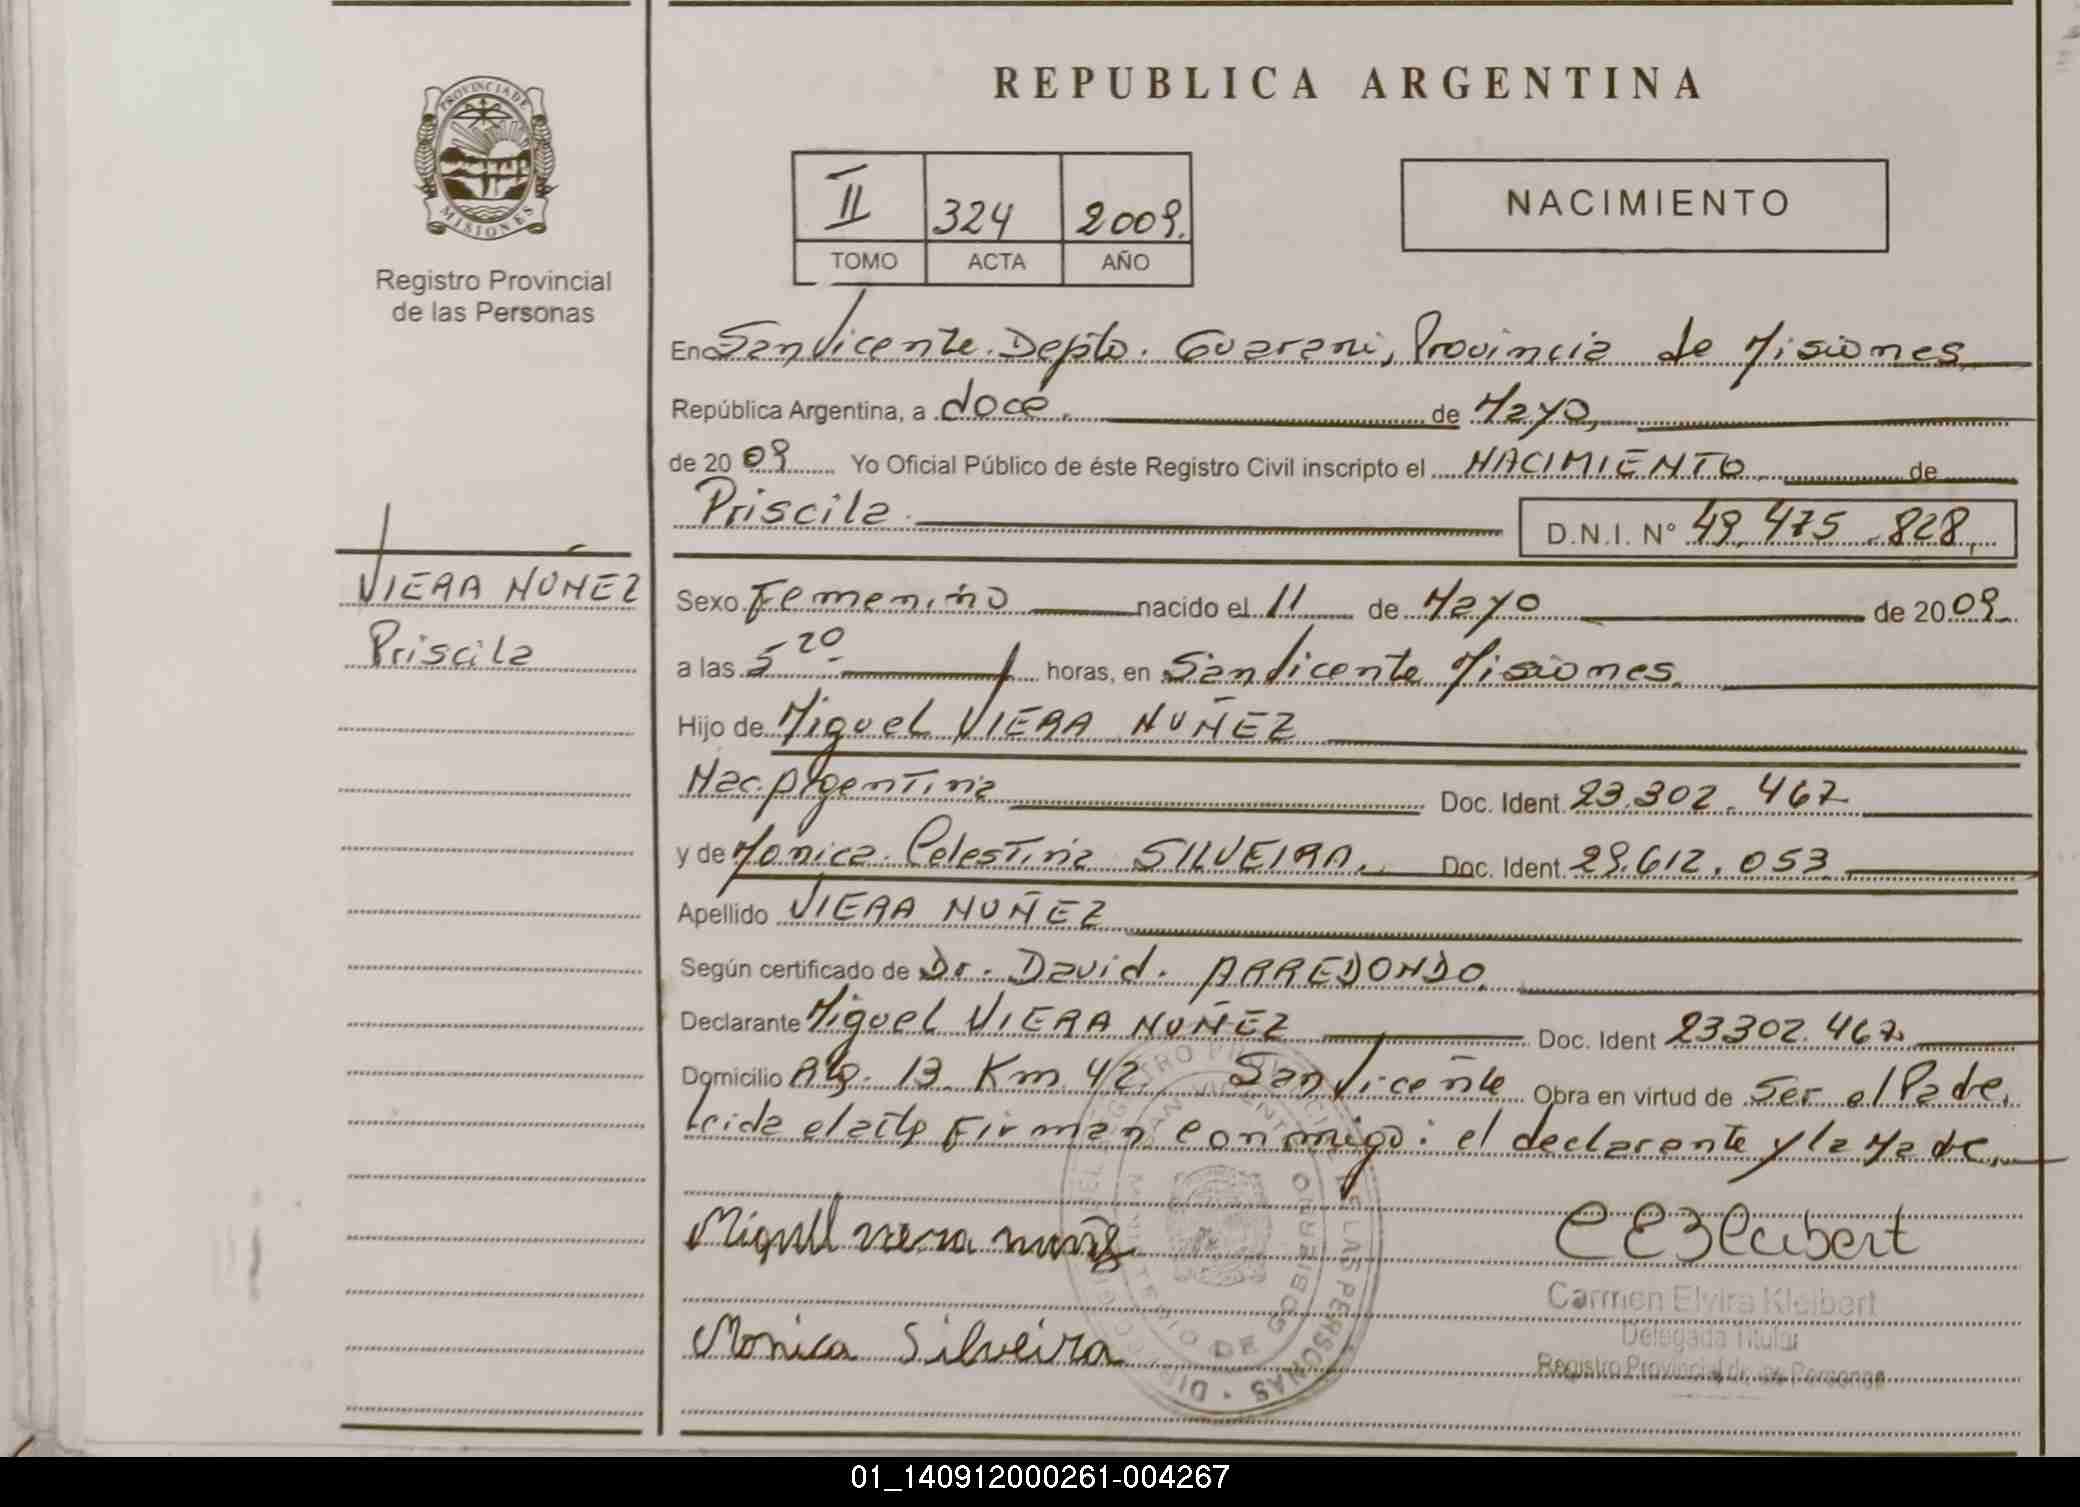 REPUBLICA ARGENTINA
PROVINCIA DE
MISIONES
Registro Provincial
de las Personas
II 324 2009.
TOMO ACTA AÑO
NACIMIENTO
En San Vicente. Depto. Guarani, Provincia de Misiones,
República Argentina, a doce. de Mayo,
de 2009 Yo Oficial Público de éste Registro Civil inscripto el NACIMIENTO de
Priscila D.N.I. N° 49.475.828,
VIERA NUÑEZ
Priscila
Sexo Femenino nacido el 11 de Mayo de 2009.
a las 5 20 horas, en San Vicente Misiones.
Hijo de Miguel VIERA NUÑEZ
Nac. Argentina Doc. Ident. 23.302.467
y de Monica Celestina SILVEIRA. Doc. Ident. 29.612.053
Apellido VIERA NUÑEZ
Según certificado de Dr. David. ARREDONDO.
Declarante Miguel VIERA NUÑEZ Doc. Ident 23302.467
Domicilio 13 Km 42. San Vicente Obra en virtud de Ser el Padre.
Leida el acta Firman conmigo: el declarante y la Madre.
Miguel viera nuñez
CEKleibert
Carmen Elvira Kleibert
Delegada Titular
Registro Provincial de las Personas
Monica Silveira
01_140912000261-004267